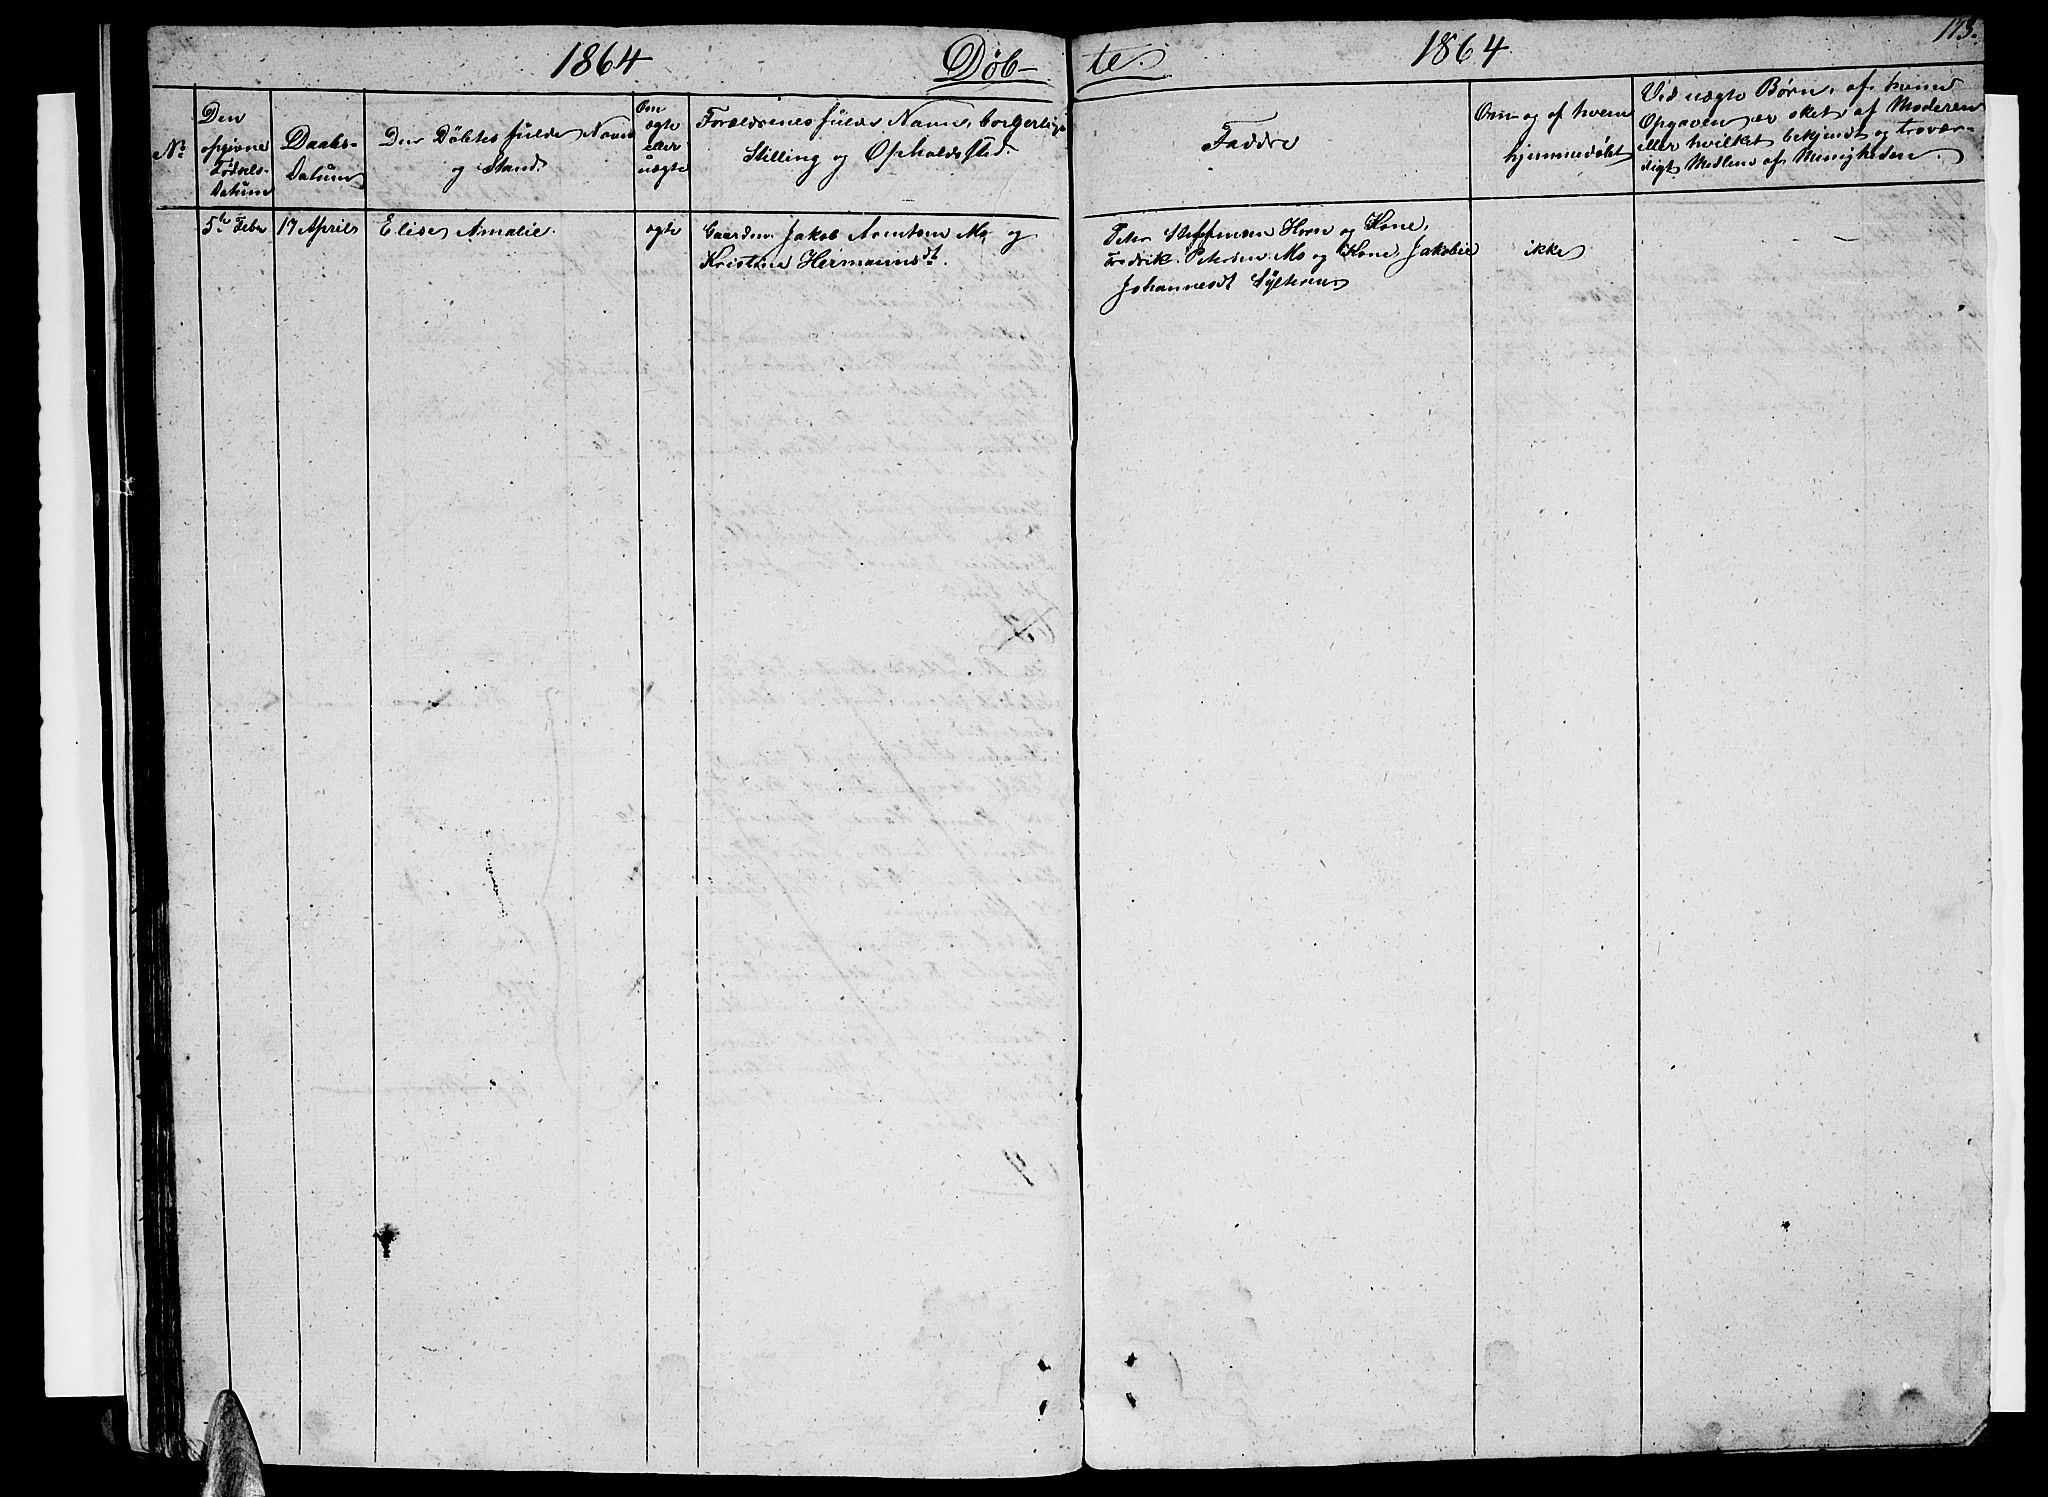 113.
1864 Døb- te. 1864
No
Den
opgivne
Fødsels-
Datum
Daabs-
Datum
Den Døbtes fulde Navn
og Stand.
Om
ægte
eller
uægte
Forældrenes fulde Navn, borgerlige
Stilling og Opholdssted.
Faddre
Om og af hvem
hjemmedøbt
Ved uægte Børn, af hvem
Opgaven er sket af Moderen
eller hvilket bekjendt og trovær-
digt Medlem af Menigheden.
5te Febr
17 April
Elise Amalie.
ægte
Gaardm. Jakob Arntsen Mo og
Kristine Hermansdt.
Peter Steffensen Horn og Kone,
Fredrik Petersen Mo og Kone, Jakobie
Johannesdt Sylteren
ikke